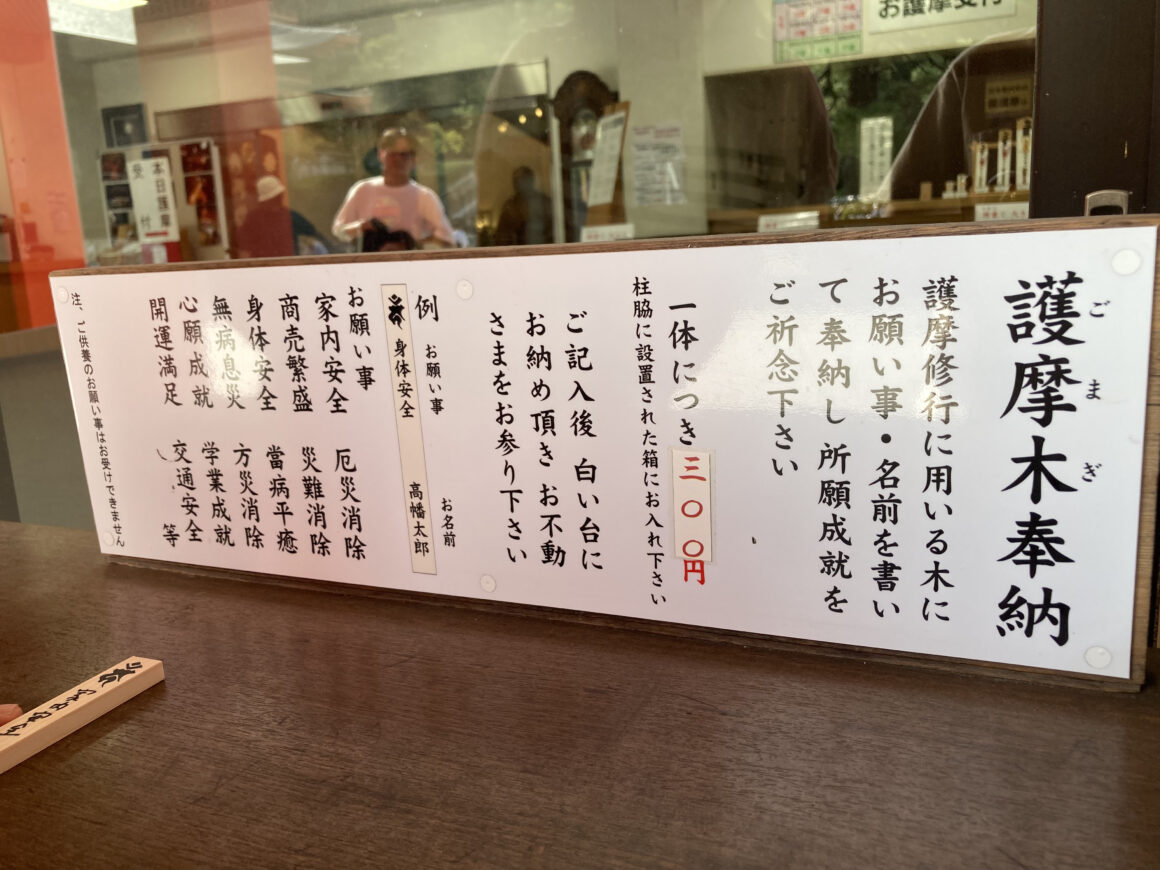 護摩木奉納
ごまぎ
護摩修行に用いる木に
お願い事・名前を書い
て奉納し 所願成就を
ご祈念下さい
一体につき三〇〇円
柱脇に設置された箱にお入れ下さい
ご記入後 白い台に
お納め頂き お不動
さまをお参り下さい
例 お願い事 お名前
身体安全 高幡太郎
お願い事
家内安全 厄災消除
商売繁盛 災難消除
身体安全 當病平癒
無病息災 方災消除
心願成就 学業成就
開運満足 交通安全 等
注、ご供養のお願い事はお受けできません
お護摩受付
本日護摩
受付